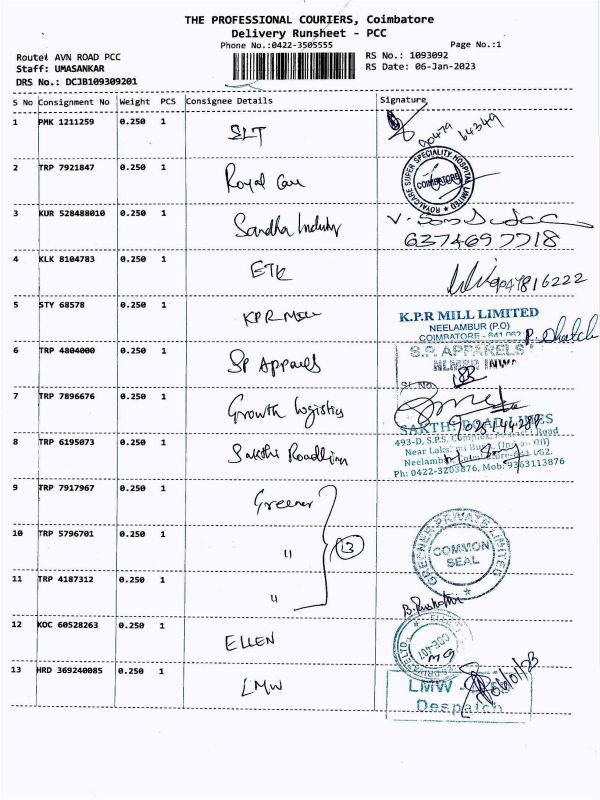 THE PROFESSIONAL COURIERS, Coimbatore
Delivery Runsheet - PCC
Phone No.:0422-3505555
Page No.:1
Route: AVN ROAD PCC
Staff: UMASANKAR
DRS No.: DCJB109309201
RS No.: 1093092
RS Date: 06-Jan-2023
S No Consignment No Weight PCS Consignee Details Signature
1 PMK 1211259 0.250 1 SLT
90479 64349
2 TRP 7921847 0.250 1 Royal Care
ROYALCARE SUPER SPECIALITY HOSPITAL LIMITED
COIMBATORE
3 KUR 528488010 0.250 1 Sandha Industry
6374697718
4 KLK 8104783 0.250 1 ETK
9047816222
5 STY 68578 0.250 1 KPR Mill
K.P.R MILL LIMITED
NEELAMBUR (P.O)
COIMBATORE - 641 062
6 TRP 4804000 0.250 1 SP Apparels
S.P. APPARELS
7 TRP 7896676 0.250 1 Growth Logistics
8 TRP 6195073 0.250 1 Sakthi Roadlines
SAKTHI ROADLINES
493-D, S.P.S. Complex, Road
Near Lakshmi Bunk, (Indian Oil)
Neelambur, Coimbatore-641 062.
Ph: 0422-3203876, Mob: 9363113876
9 TRP 7917967 0.250 1 Greener
10 TRP 5796701 0.250 1 "
3
11 TRP 4187312 0.250 1 "
GREENER PRIVATE LIMITED
COMMON SEAL
12 KOC 60528263 0.250 1 ELLEN
13 HRD 369240085 0.250 1 LMW
LMW -
Despatch